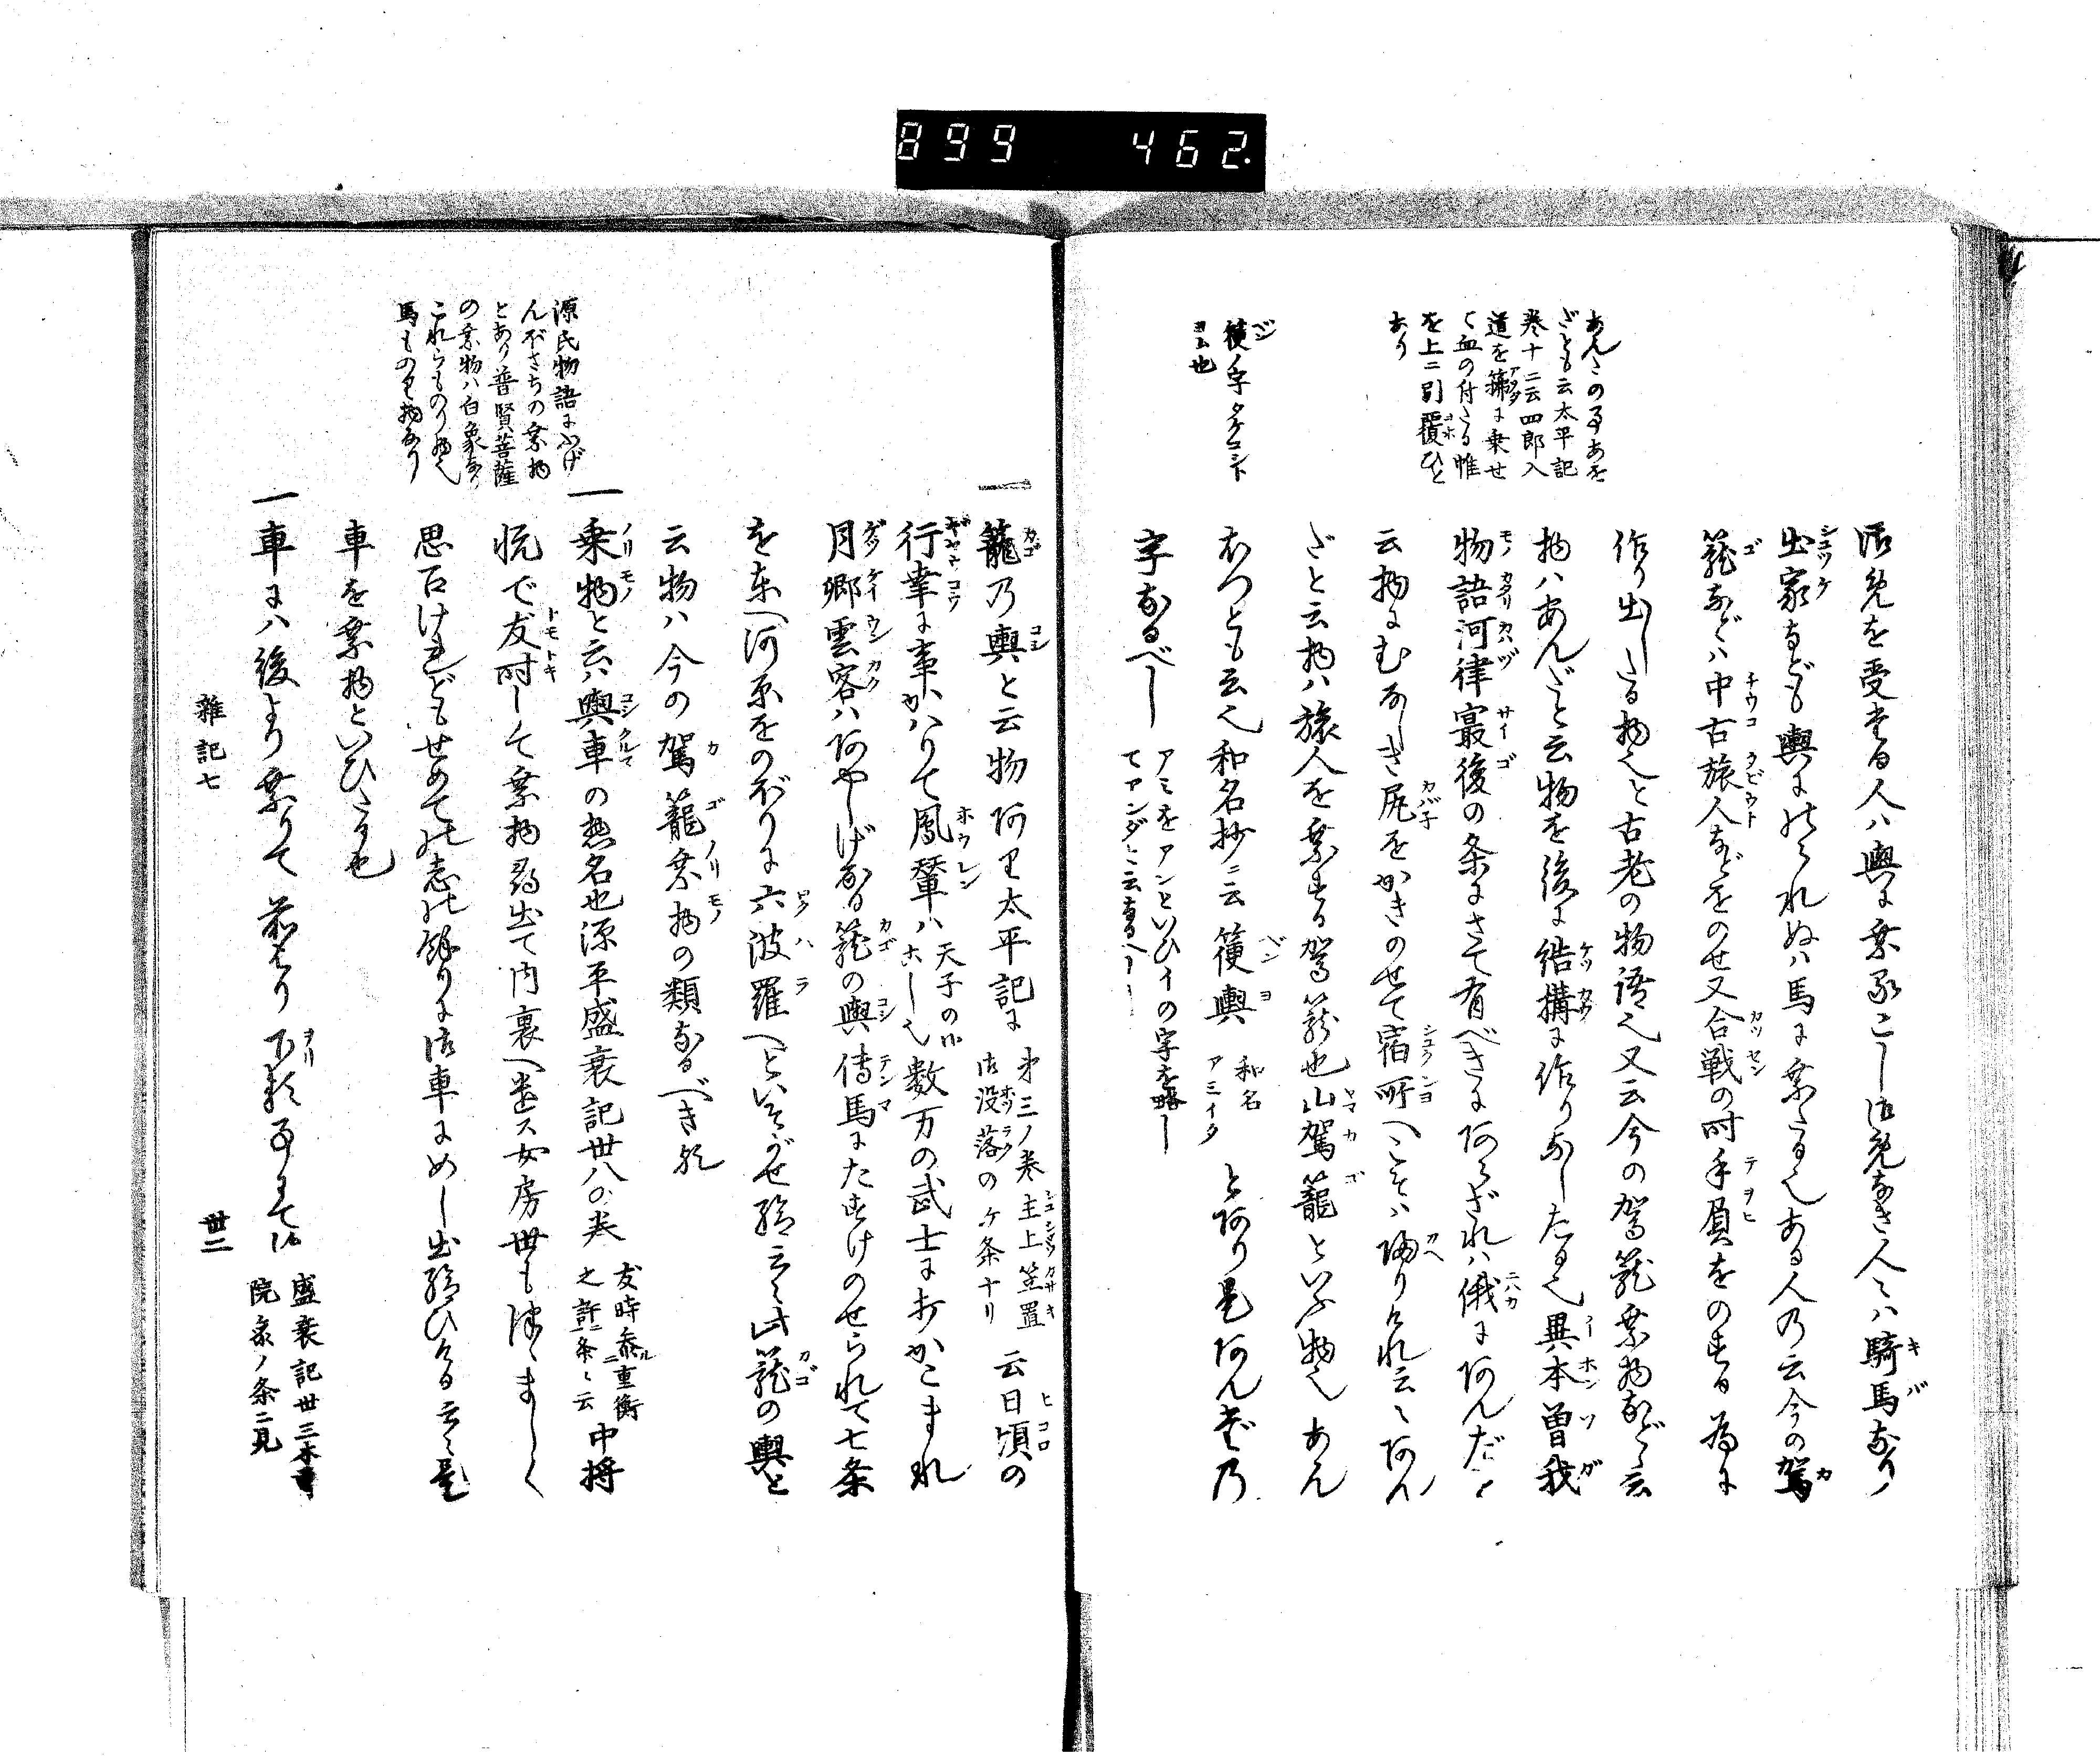 899 462
あんだの事あを
だとも云太平記
巻十ニ云四郎入
道を簿に乗せ
て血の付たる帷
を上ニ引覆ひと
あり
箯ノ字タケコシト
ヨム也
御免を受たる人ハ輿に乗るこし御免なき人々ハ騎馬なり
出家なども輿にのられぬハ馬に乗たる也ある人の云今の駕
籠などハ中古旅人などをのせ又合戦の時手負をのする為に
作り出したる物也と古老の物語也又云今の駕籠乗物など云
物ハあんだと云物を後に結構に作りなしたる也異本曽我
物語河津最後の条にさて有べきにあらざれハ俄にあんだと
云物にむなしき尻をかきのせて宿所へこそハ帰りけれ云々あん
だと云物ハ旅人を乗する駕籠也山駕籠といふ物也あん
おつとも云也和名抄ニ云箯輿 和名アミイタ とあり是あんだの
字なるべし アミをアンといひイの字を略し
てアンダと云なるべし
一 籠乃輿と云物あり太平記に 第三ノ巻主上笠置
御没落のケ条ナリ 云日頃の
行幸に事かハりて鳳輦ハ 天子の御
こし也 数万の武士に打かこまれ
月卿雲客ハあやしげなる籠の輿傳馬にたすけのせられて七条
を東へ河原をのぼりに六波羅へといそがせ給云々此籠の輿と
云物ハ今の駕籠乗物の類なるべき歟
一 乗物と云ハ輿車の惣名也源平盛衰記卅八の巻 友時参重衡
之許ニ条ニ云 中将
悦で友時して乗物尋出て内裏へ遣ス女房世もつゝましく
思召けれどもせめての志の餘りに御車にめし出給ひける云々是
車を乗物といひたる也
源氏物語にふげ
んぼさちの乗物
とあり普賢菩薩
の乗物ハ白象なり
これらものり物也
馬ものり物なり
一 車にハ後より乗りて前より下るゝ事にて候 盛衰記卅三木曽
院参ノ条ニ見
雑記七
卅二